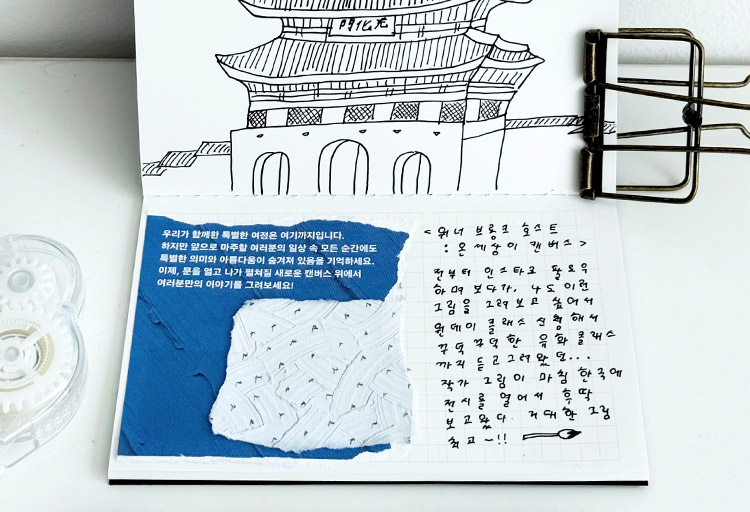 門化光
우리가 함께한 특별한 여정은 여기까지입니다.
하지만 앞으로 마주할 여러분의 일상 속 모든 순간에도
특별한 의미와 아름다움이 숨겨져 있음을 기억하세요.
이제, 문을 열고 나가 펼쳐질 새로운 캔버스 위에서
여러분만의 이야기를 그려보세요!
<워너 브롱크 호스트
: 온 세상이 캔버스>
전부터 인스타로 팔로우
하며 보다가, 나도 이런
그림을 그려보고 싶어서
원데이 클래스 신청해서
꾸덕꾸덕한 유화 클래스
까지 듣고 그려왔던...
작가 그림이 마침 한국에
전시를 열어서 후딱
보고왔다. 거대한 그림
최고-!!